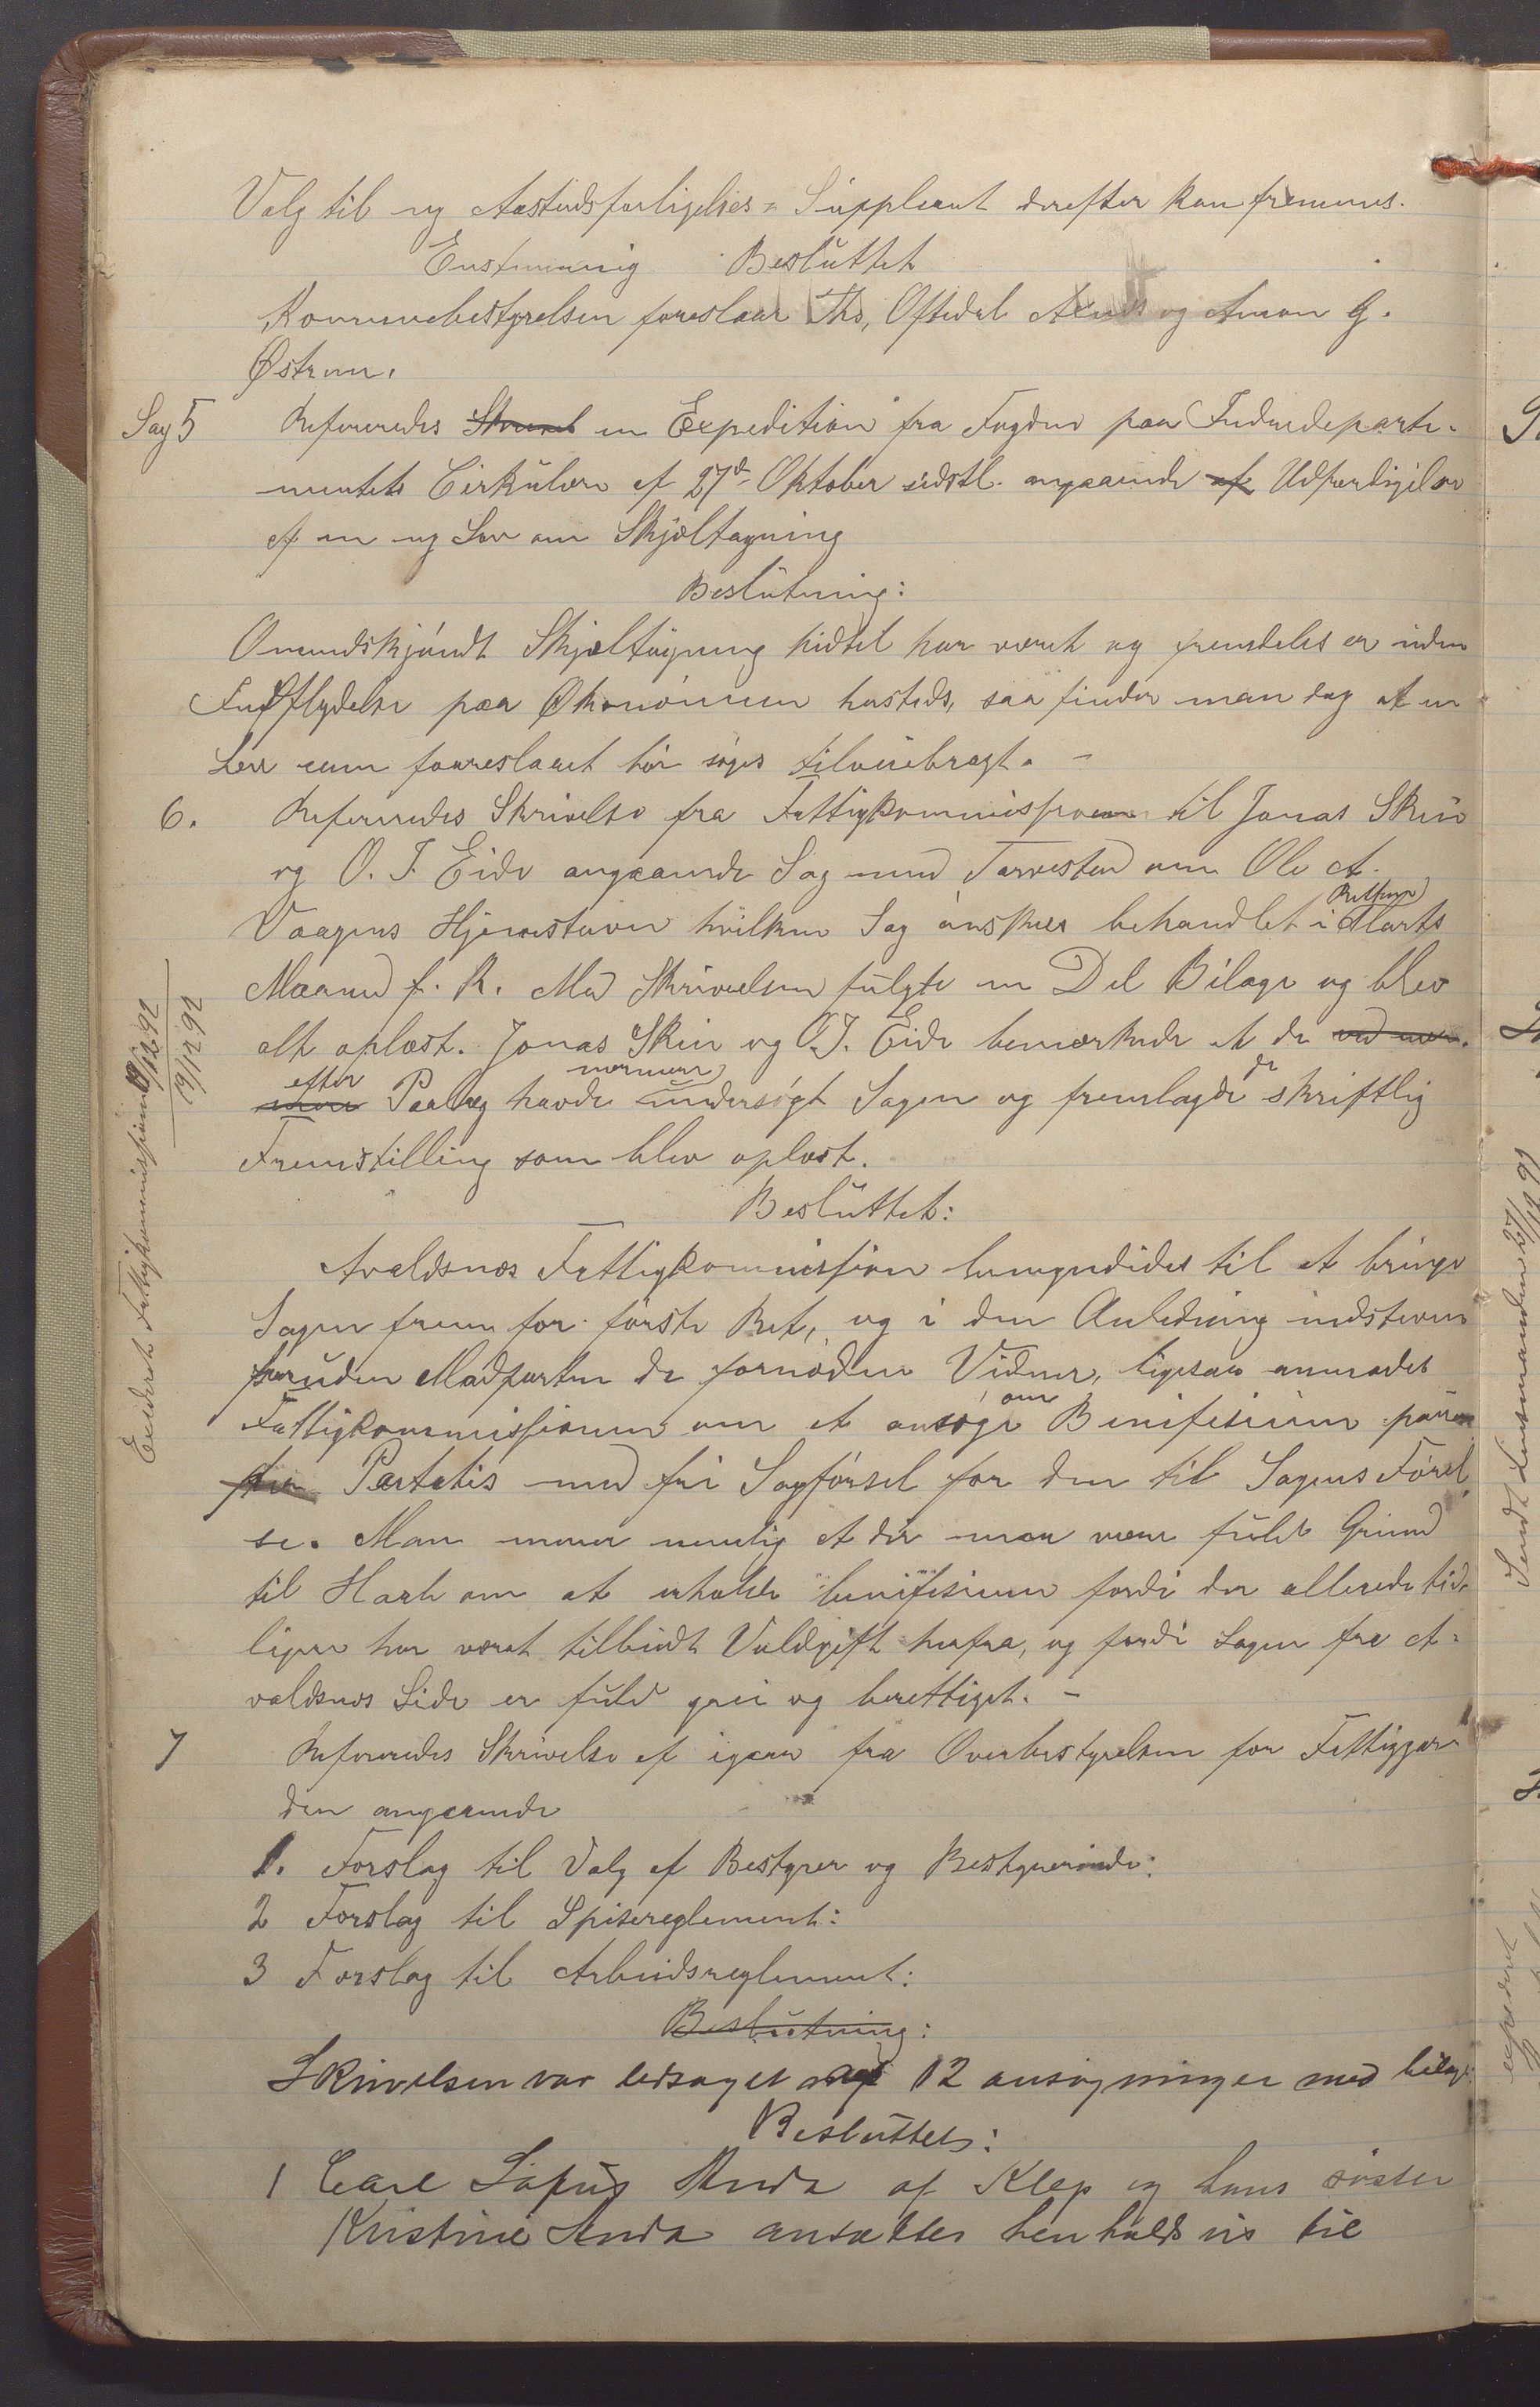 Valg til ny Aastedsforligelses- Suppleant derefter kan fremmes.
Enstemmig Besluttet
Kommunebestyrelsen foreslaar Ths, Oftedal og Amon G.
Østrem.
Sag 5 Refereredes en Expedition fra Fogden paa Indredeparte-
mentets Cirkulære af 27de Oktober sidstl. angaaende af Udfærdigelse
af en ny Lov om Skjeltagning
Beslutning:
Omendskjøndt Skjeltagning hidtil har været og fremdeles er uden
Indflydelse paa Økonomien hersteds, saa finder man dog at en
Lov som foreslaaet bør søges tilveiebragt. -
6. Refereredes Skrivelse fra Fattigkommissionen til Jonas Skeie
og O. J. Eide angaaende Sag mod Torvestad om Ole A.
Vaagens Hjemstavn hvilken Sag ønskes behandlet i Marts
Maaned f. K. Med Skrivelsen fulgte en Del Bilage og blev
alt oplæst. Jonas Skeie og O. J. Eide bemærkede at de
efter Paalæg havde nærmere undersøgt Sagen og fremlagde de skriftlig
Fremstilling som blev oplæst.
Besluttet:
Avaldsnes Fattigkommission bemyndides til at bringe
Sagen frem for første Ret, og i den Anledning indstevne
foruden Modparten de fornødne Vidner, ligesaa anmodes
Fattigkommissionen om at ansøge om Benifisium paue
Partatis med fri Sagførsel for den til Sagens Førel
se. Man mener nemlig at der maa være fuld Grund
til Haab om at erholde benifisium fordi der allerede tid-
ligere har været tilbudt Voldgift herfra, og fordi Sagen fra A-
valdsnes Side er fuld grei og berettiget. -
7 Refereredes Skrivelse af igaar fra Overbestyrelsen for Fattiggaar-
den angaaende
1. Forslag til Valg af Bestyrer og Bestyrerinde:
2 Forslag til Spisereglement:
3 Forslag til Arbeidsreglement:
Beslutning:
Skrivelsen var ledsaget af 12 ansøgninger med bilag.
Besluttes:
1 Carl Sofus Anda af Klep og hans søster
Kristine Anda ansættes henholdsvis til
Exideret Fattigkommissionen 19/12 92
19/12 92
Sendt Lensmanden 27/12 92